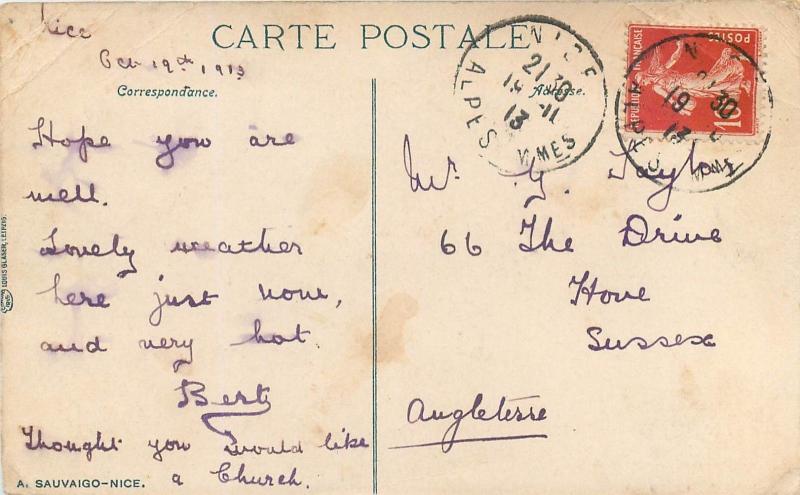 CARTE POSTALE
Nice
Oct 19th 1913
Correspondance.
Adresse.
Hope you are
well.
Lovely weather
here just now,
and very hot.
Bert
Thought you would like
a Church.
A. SAUVAIGO-NICE.
LOUIS GLASER, LEIPZIG.
Mr. G. Taylor
66 The Drive
Hove
Sussex
Angleterre
NICE
21 30
13
ALPES MMES
RÉPUBLIQUE FRANÇAISE
POSTES
10
30
19
13